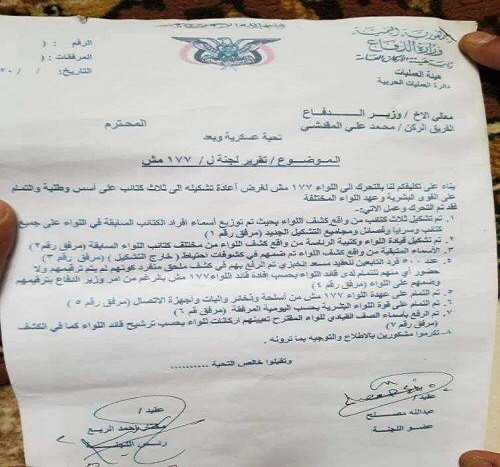 الجمهورية اليمنية
وزارة الدفاع
رئاسة هيئة الأركان العامة
هيئة العمليات
دائرة العمليات الحربية
الرقم : (
المرفقات : (
التاريخ: / / ٢٠
معالي الاخ / وزيـر الـــدفـــاع
الفريق الركن / محمد علي المقدشي المحترم
تحية عسكرية وبعد
الموضوع / تقرير لجنة ل / ١٧٧ مش
بناء على تكليفكم لنا بالتحرك الى اللواء ١٧٧ مش لغرض أعادة تشكيله الى ثلاث كتائب على أسس وطنية والتمام
على القوى البشرية وعهد اللواء المختلفة
فقد تم التحرك وعمل الاتي:-
١- تم تشكيل ثلاث كتائب من واقع كشف اللواء بحيث تم توزيع أسماء افراد الكتائب السابقة في اللواء على جميع
كتائب وسرايا وفصائل ومجاميع التشكيل الجديد (مرفق رقم ١)
٢- تم تشكيل قيادة اللواء وكتيبة الرئاسة من واقع كشف اللواء من مختلف كتائب اللواء السابقة (مرفق رقم٢)
٣- الأسماء المتبقية من واقع كشف اللواء تم ضمهم في كشوفات احتياط ( خارج التشكيل ) (مرفق رقم ٣)
٤- عدد فرد التابعين للعقيد مسعد تم الرفع بهم في كشف ملحق منفرد كونهم لم يتم ترقيمهم ولا
حضور أي منهم للتمام لدى قائد اللواء بحسب إفادة قائد اللواء ١٧٧ مش بالرغم من امر وزير الدفاع بترقيمهم
وضمهم على اللواء (مرفق رقم ٤)
٥- تم التمام على عهدة اللواء ١٧٧ مش من أسلحة وذخائر واليات وأجهزة الاتصال (مرفق رقم ٥)
٦- تم التمام على قوة اللواء البشرية بحسب اليومية المرفقة (مرفق رقم ٦)
٧- تم الرفع بأسماء الصف القيادي للواء المقترح تعيينهم اركانات للواء بحسب ترشيح قائد اللواء كما في الكشف
(مرفق رقم ٧)
٨- تكرموا مشكورين بالاطلاع والتوجيه بما ترونه .
وتقبلوا خالص التحية ،،،،،،،،،
عقيد /
عبدالله مصلح
عضو اللجنة
عقيد /
مختار احمد الربع
رئيس اللجنة